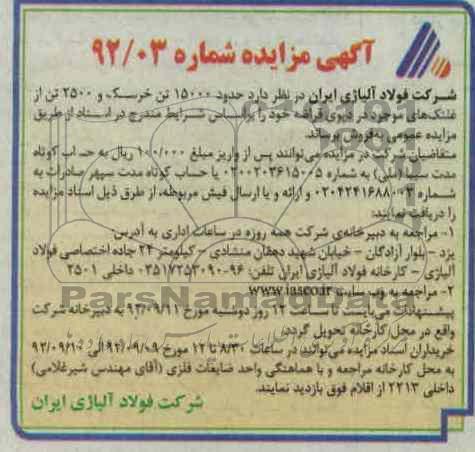 آگهی مزایده شماره ۹۲/۰۳
شرکت فولاد آلیاژی ایران در نظر دارد حدود ۱۵۰۰۰ تن خرسک و ۲۵۰۰ تن از
غلتک‌های موجود در دپوی قراضه خود را براساس شرایط مندرج در اسناد از طریق
مزایده عمومی به‌فروش برساند.
متقاضیان شرکت در مزایده می‌توانند پس از واریز مبلغ ۱۰۰/۰۰۰ ریال به حساب کوتاه
مدت سیبا (ملی) به شماره ۰۲۰۰۲۰۳۶۱۵۰۰۵ یا حساب کوتاه مدت سپهر صادرات به
شماره ارائه و یا ارسال فیش مربوطه، از طرق ذیل اسناد مزایده
را دریافت نمایند:
۱- مراجعه به دبیرخانه‌ی شرکت همه روزه در ساعات اداری به آدرس:
یزد - بلوار آزادگان - خیابان شهید دهقان منشادی - کیلومتر ۲۴ جاده اختصاصی فولاد
آلیاژی - کارخانه فولاد آلیاژی ایران تلفن: ۹۶-۰۳۵۱۷۲۵۳۰۹۰ داخلی ۲۵۰۱
۲- مراجعه به وب سایت www.iasco.ir
پیشنهادات می‌بایست تا ساعت ۱۴ روز دوشنبه مورخ به دبیرخانه شرکت
واقع در محل کارخانه تحویل گردد.
خریداران اسناد مزایده می‌توانند در ساعات ۸/۳۰ تا ۱۲ مورخ الی
به محل کارخانه مراجعه و با هماهنگی واحد ضایعات فلزی (آقای مهندس شیرغلامی)
داخلی ۲۲۱۳ از اقلام فوق بازدید نمایند.
شرکت فولاد آلیاژی ایران
ParsNamadData